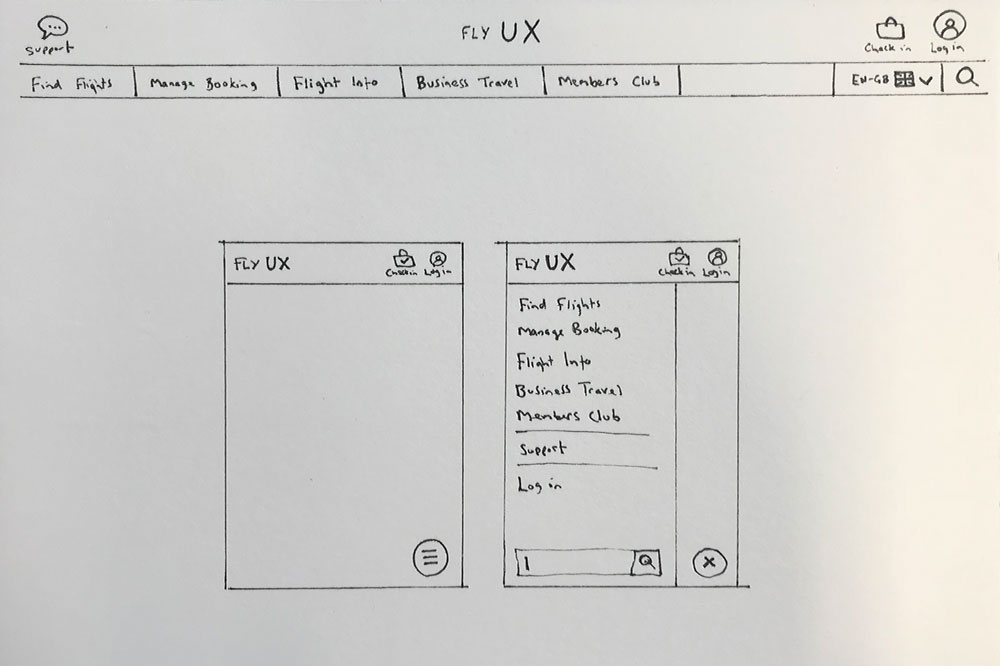 FLY UX
Support
Check in
Log in
Find Flights
Manage Booking
Flight Info
Business Travel
Members Club
EN-GB
FLY UX
Check in
Log in
FLY UX
Check in
Log in
Find Flights
Manage Booking
Flight Info
Business Travel
Members Club
Support
Log in